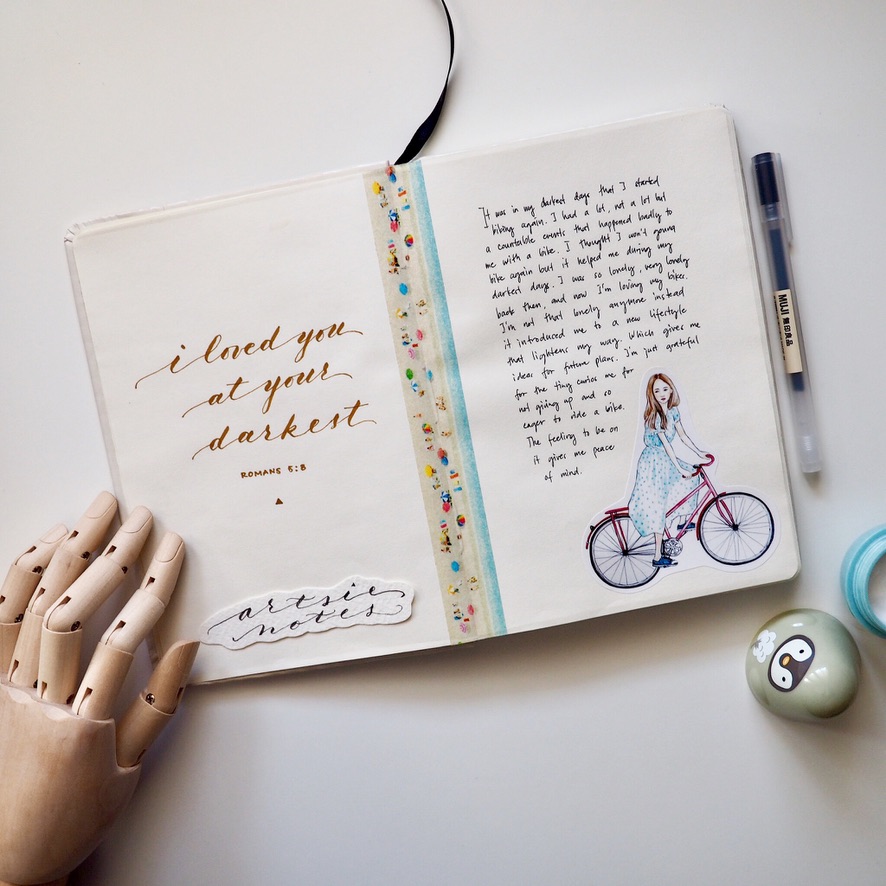 i loved you
at your
darkest
ROMANS 5:8
artsie
notes
It was in my darkest days that I started
biking again. I had a lot, not a lot but
a countable events that happened badly to
me with a bike. I thought I won't going
bike again but it helped me during my
darkest days. I was so lonely, very lonely
back then, and now I'm loving my bikes.
I'm not that lonely anymore instead
it introduced me to a new lifestyle
that lightens my way. Which gives me
ideas for future plans. I'm just grateful
for the tiny curios me for
not giving up and so
eager to ride a bike.
The feeling to be on
it gives me peace
of mind.
MUJI 無印良品